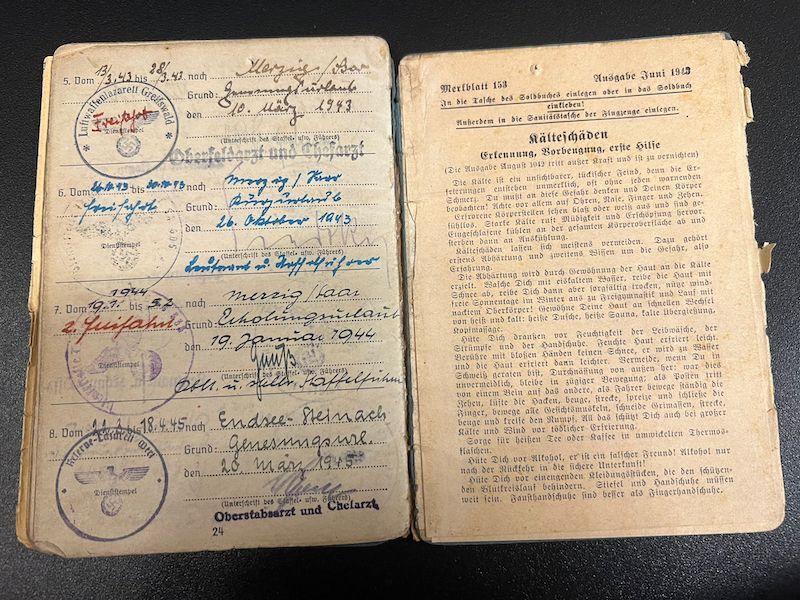 5. Vom 13/3.43 bis 28/3.43 nach Merzig/Saar
Grund: Genesungsurlaub
den 10. März 1943
Luftwaffenlazarett Greifswald
Dienststempel
(Unterschrift des Staffel- usw. Führers)
Oberfeldarzt und Chefarzt
6. Vom bis nach Merzig/Saar
Freifahrt
Grund: Kurzurlaub
den 26. Oktober 1943
Dienststempel
(Unterschrift des Staffel- usw. Führers)
Leutnant u.
1944
7. Vom 19.1. bis 5.2. nach Merzig/Saar
2. Freifahrt
Grund: Erholungsurlaub
den 19. Januar 1944
(Unterschrift des Staffel- usw. Führers)
Oblt. u. stellv. Staffelführer
8. Vom bis 18.4.45 nach Endsee-Steinach
Grund: Genesungsurl.
den 20. März 1945
Dienststempel
(Unterschrift des Staffel- usw. Führers)
Oberstabsarzt und Chefarzt
24
Merkblatt 153 Ausgabe Juni 1943
In die Tasche des Soldbuches einlegen oder in das Soldbuch
einkleben!
Außerdem in die Sanitätstasche der Flugzeuge einlegen.
Kälteschäden
Erkennung, Vorbeugung, erste Hilfe
(Die Ausgabe August 1942 tritt außer Kraft und ist zu vernichten)
Die Kälte ist ein unsichtbarer, tückischer Feind, denn die Er-
frierungen entstehen unmerklich, oft ohne jeden warnenden
Schmerz. Du mußt an diese Gefahr denken und Deinen Körper
beobachten! Achte vor allem auf Ohren, Nase, Finger und Zehen.
Erfrorene Körperstellen sehen blaß oder weiß aus und sind ge-
fühllos. Starke Kälte ruft Müdigkeit und Erschöpfung hervor.
Eingeschlafene kühlen an der gesamten Körperoberfläche ab und
sterben dann an Auskühlung.
Kälteschäden lassen sich meistens vermeiden. Dazu gehört
erstens Abhärtung und zweitens Wissen um die Gefahr, also
Erfahrung.
Die Abhärtung wird durch Gewöhnung der Haut an die Kälte
erzielt. Wasche Dich mit eiskaltem Wasser, reibe die Haut mit
Schnee ab, reibe Dich dann aber sorgfältig trocken, nütze wind-
freie Sonnentage im Winter aus zu Freigymnastik und Lauf mit
nacktem Oberkörper! Gewöhne Deine Haut an schnellen Wechsel
von heiß und kalt: heiße Dusche, heiße Sauna, kalte Übergießung,
Kopfmassage.
Hüte Dich draußen vor Feuchtigkeit der Leibwäsche, der
Strümpfe und der Handschuhe. Feuchte Haut erfriert leicht.
Berühre mit bloßen Händen keinen Schnee, er wird zu Wasser
und die Haut erfriert dann leichter. Vermeide, wenn Du in
Schweiß geraten bist, Durchnässung von außen her; war dies
unvermeidlich, bleibe in zügiger Bewegung; als Posten tritt
von einem Bein auf das andere, als Fahrer bewege ständig die
Zehen, lüfte die Hacken, beuge, strecke, spreize und schließe die
Finger, bewege alle Gesichtsmuskeln, schneide Grimassen,
beuge und kreise den Rumpf. All das schützt Dich auch bei großer
Kälte und Wind vor örtlicher Erfrierung.
Sorge für heißen Tee oder Kaffee in umwickelten Thermos-
flaschen.
Hüte Dich vor Alkohol, er ist ein falscher Freund! Alkohol nur
nach der Rückkehr in die sichere Unterkunft!
Hüte Dich vor einengenden Kleidungsstücken, die den schützen-
den Blutkreislauf behindern. Stiefel und Handschuhe müssen
weit sein. Fausthandschuhe sind besser als Fingerhandschuhe.